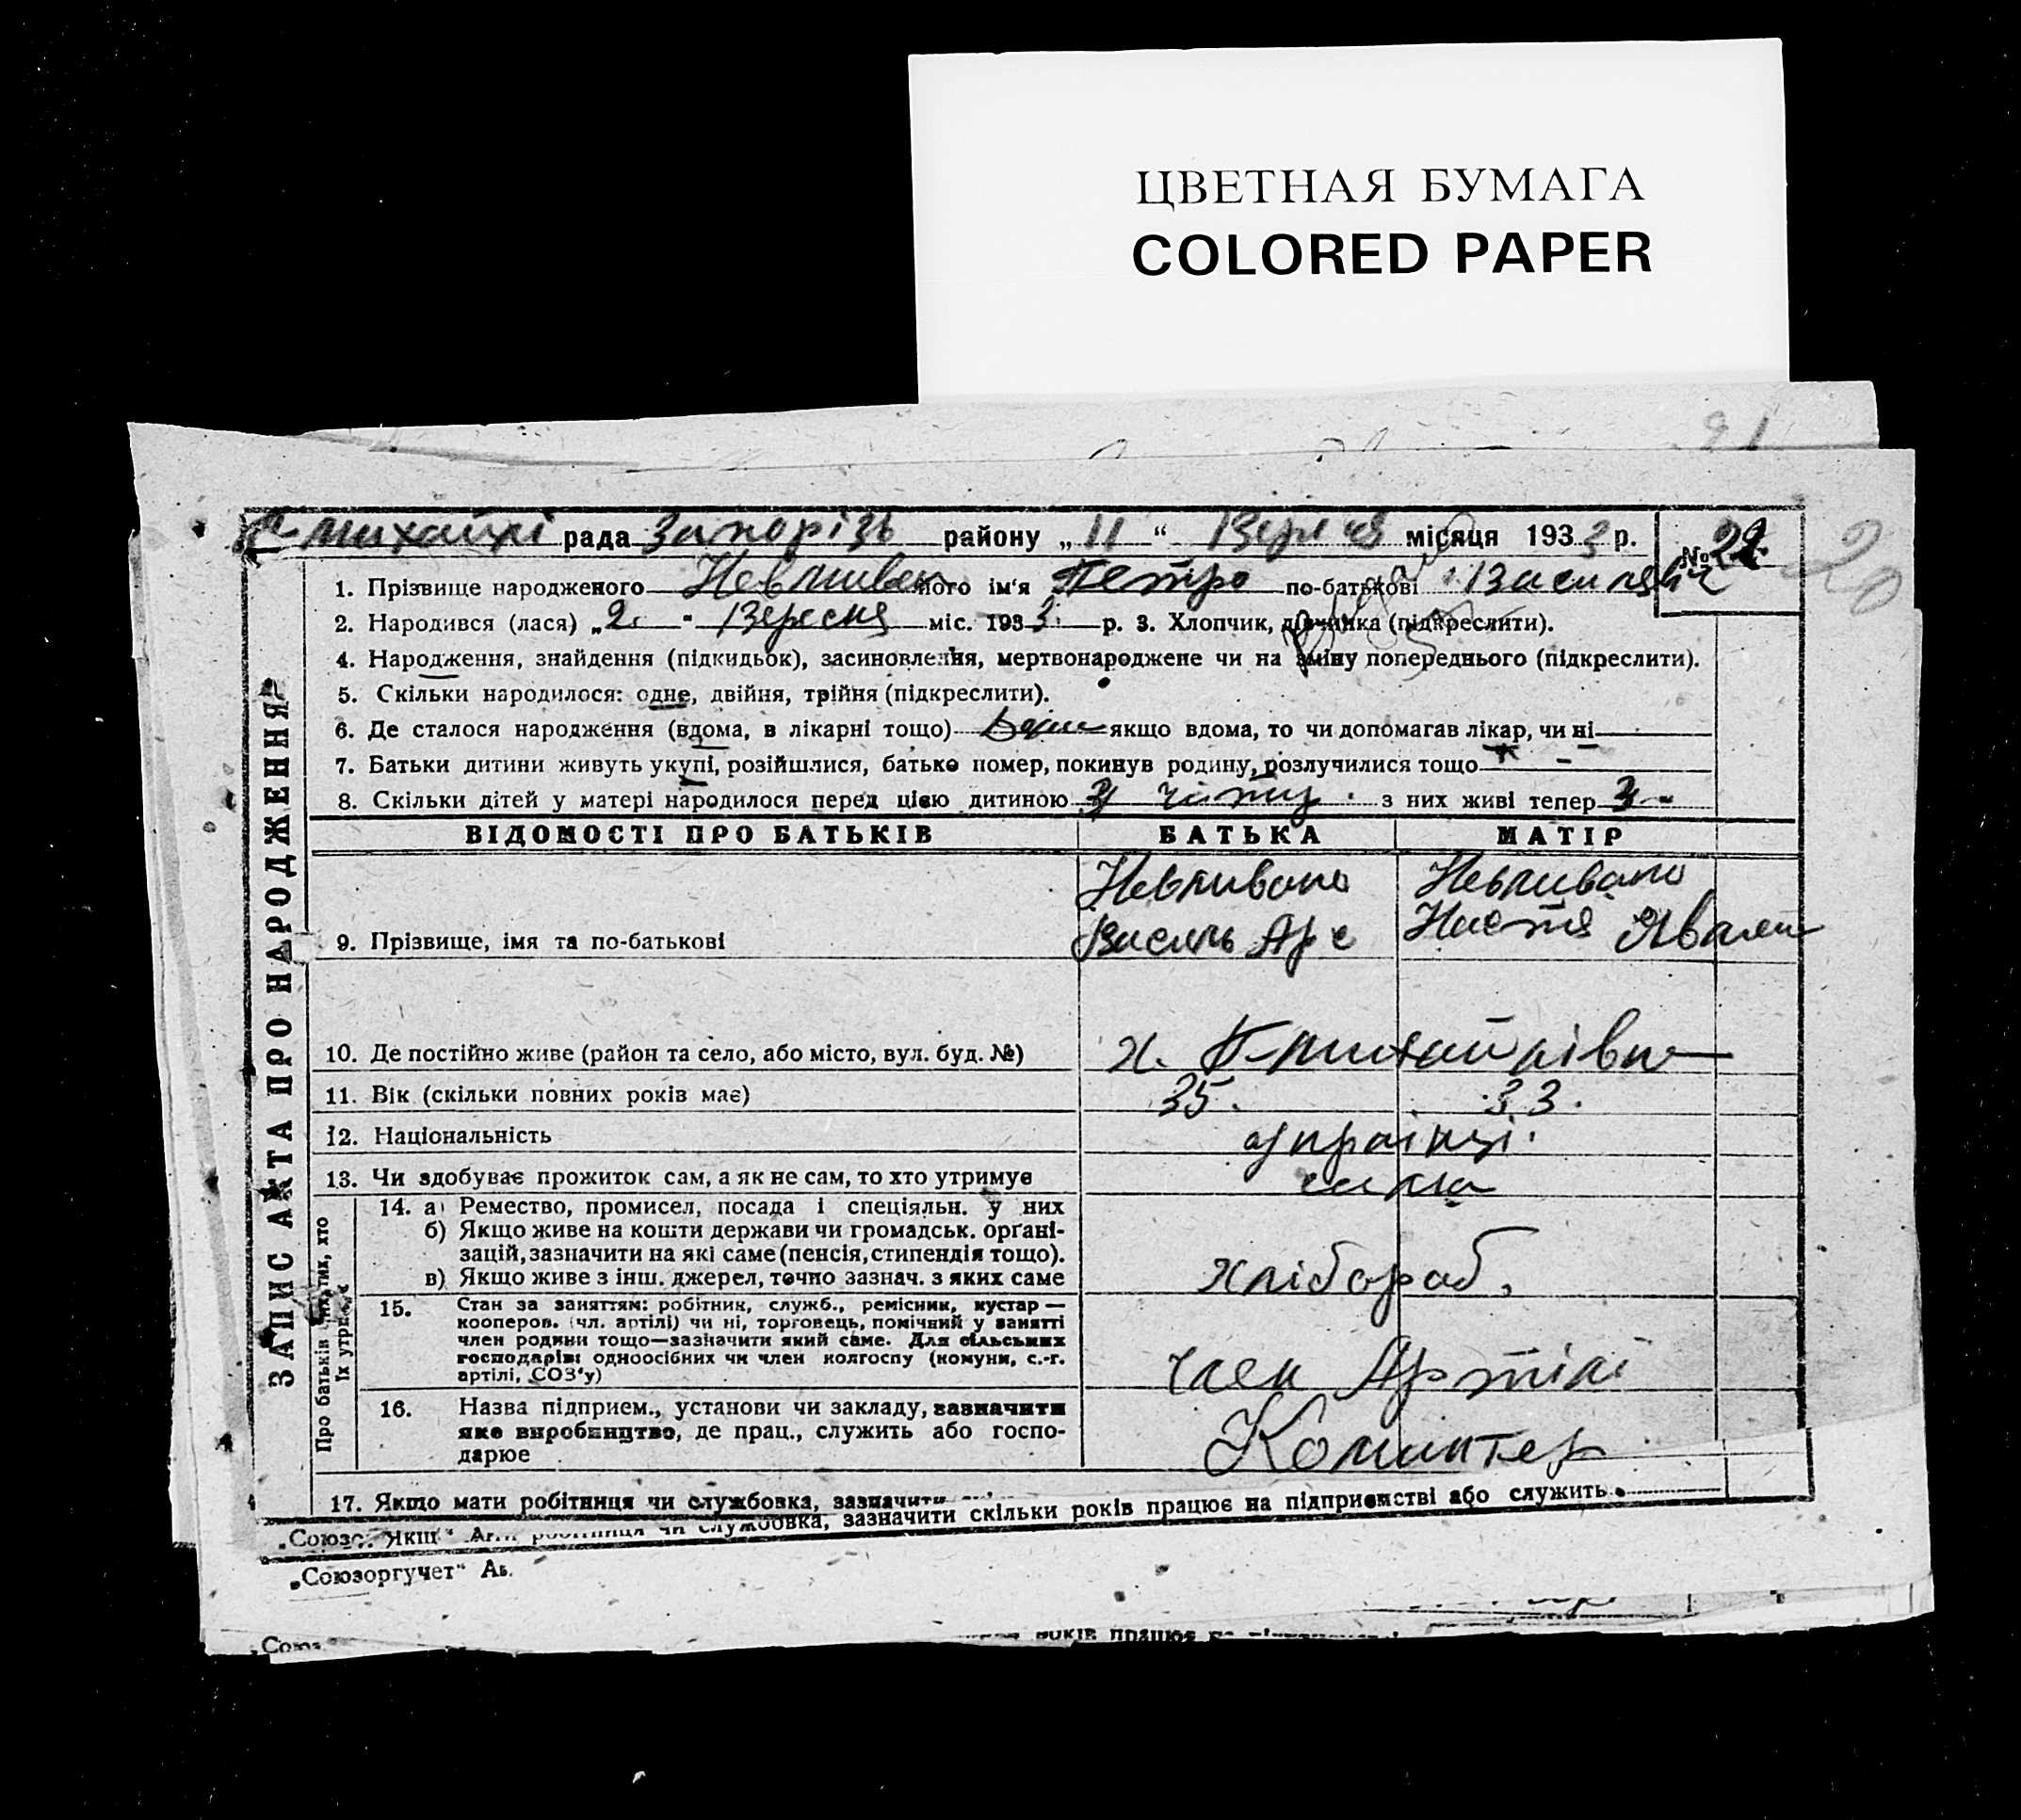 ЦВЕТНАЯ БУМАГА
COLORED PAPER
21
рада Запорізь району „11“ місяця 1933 р.
№ 22 20
1. Прізвище народженого його ім'я Петро по-батькові
2. Народився (лася) „2.“ Вересня міс. 1933. р. 3. Хлопчик, дівчинка (підкреслити).
4. Народження, знайдення (підкидьок), засиновлення, мертвонароджене чи на зміну попереднього (підкреслити).
5. Скільки народилося: одне, двійня, трійня (підкреслити).
6. Де сталося народження (вдома, в лікарні тощо) якщо вдома, то чи допомагав лікар, чи ні
7. Батьки дитини живуть укупі, розійшлися, батько помер, покинув родину, розлучилися тощо
8. Скільки дітей у матері народилося перед цією дитиною з них живі тепер 3
ВІДОМОСТІ ПРО БАТЬКІВ БАТЬКА МАТІР
9. Прізвище, імя та по-батькові
Василь Настя
10. Де постійно живе (район та село, або місто, вул. буд. №) х.
11. Вік (скільки повних років має) 35. 33.
12. Національність українці.
13. Чи здобуває прожиток сам, а як не сам, то хто утримує
14. а) Ремество, промисел, посада і спеціяльн. у них
б) Якщо живе на кошти держави чи громадськ. органі-
зацій, зазначити на які саме (пенсія, стипендія тощо).
в) Якщо живе з інш. джерел, точно зазнач. з яких саме
хлібороб.
15. Стан за заняттям: робітник, служб., ремісник, кустар —
кооперов. (чл. артілі) чи ні, торговець, помічний у занятті
член родини тощо—зазначити який саме. Для сільських
господарів: одноосібних чи член колгоспу (комуни, с.-г.
артілі, СОЗ'у)
член Артілі
16. Назва підприєм., установи чи закладу, зазначити
яке виробництво, де прац., служить або госпо-
дарює
Комінтер
17. Якщо мати робітниця чи службовка, зазначити скільки років працює на підприємстві або служить
„Союзоргучет“
ЗАПИС АКТА ПРО НАРОДЖЕННЯ
Про батьків чи тих, хто
їх утримує